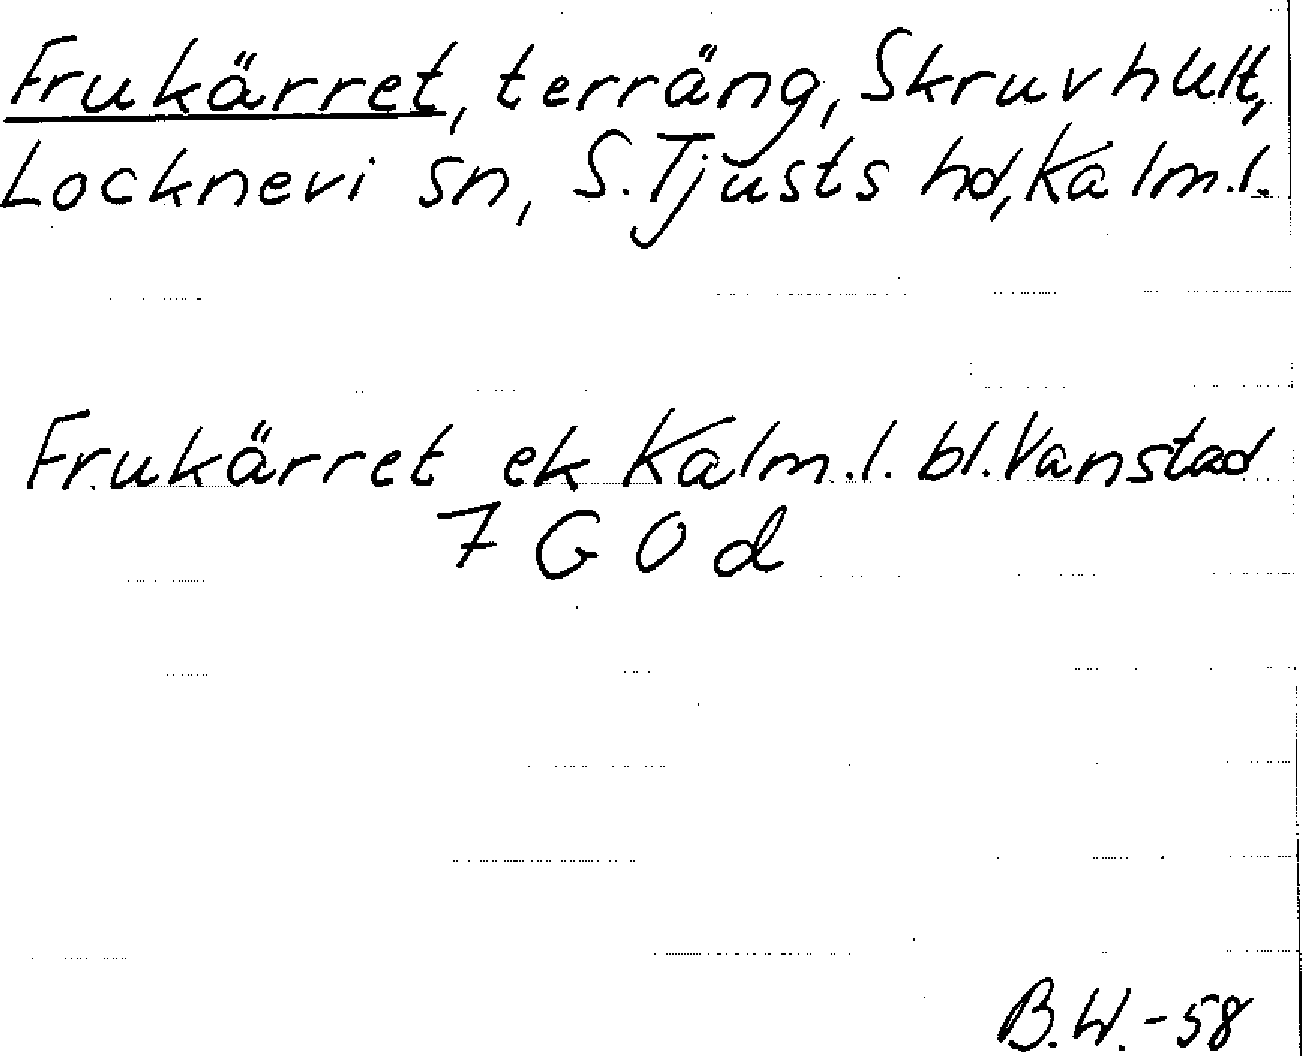 Frukärret, terräng, Skruvhult,
Locknevi sn, S. Tjusts hd, Kalm.l.
Frukärret ek Kalm.l. bl. Vanstad
7 G 0 d
B.W.-58